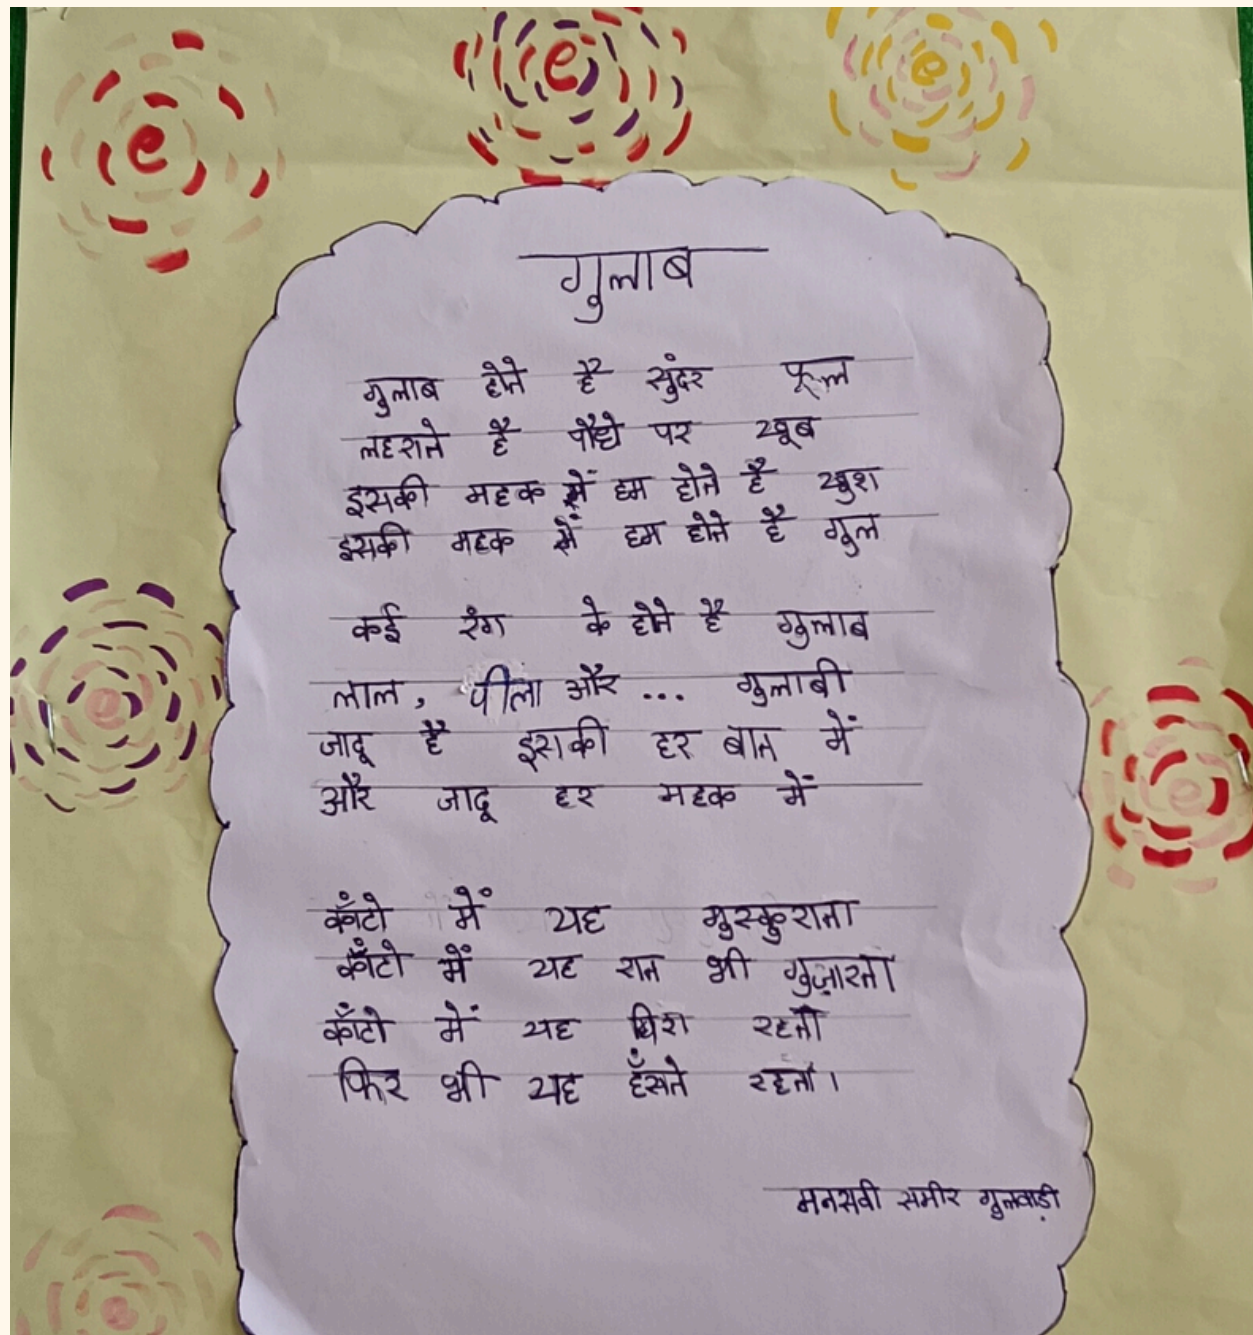 गुलाब
गुलाब होते है सुंदर फूल
लहराते है पौधे पर खूब
इसकी महक में हम होते है खुश
इसकी महक में हम होते है गुल
कई रंग के होते है गुलाब
लाल, पीला और ... गुलाबी
जादू है इसकी हर बात में
और जादू हर महक में
काँटो में यह मुस्कुराता
काँटो में यह रात भी गुज़ारता
काँटो में यह घिरा रहता
फिर भी यह हँसते रहता।
मनसवी समीर गुलवाड़ी